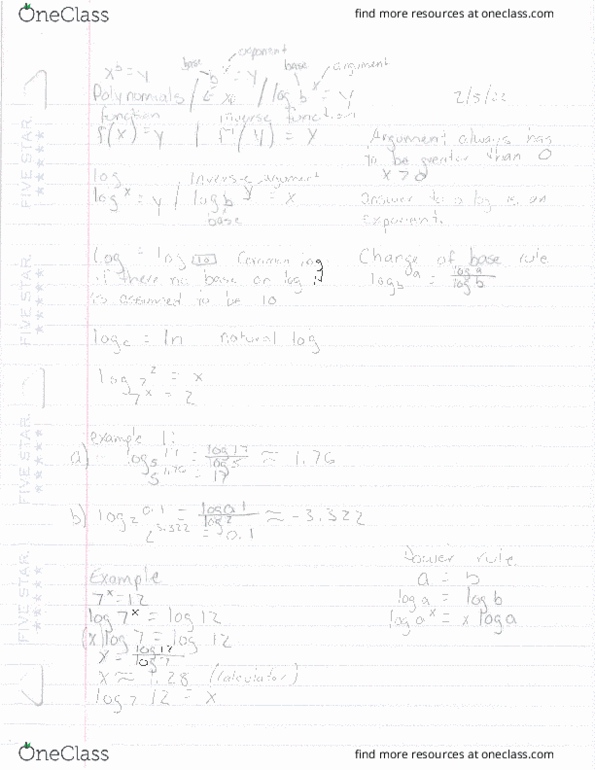 OneClass
find more resources at oneclass.com
exponent
base base argument
x^b = y b^x = y
Polynomials / / log b^x = y
function inverse function
f(x) = y | f^-1(y) = x
2/5/22
Argument always has
to be greater than 0
x > 0
log Inverse argument
log^x = y / log b^y = x
base
answer to a log is an
exponent.
log = log 10 Common log
if there no base on log it
is assumed to be 10
Change of base rule
log_b a = log a / log b
log_e = ln natural log
log_7 2 = x
7^x = 2
example 1:
a) log_5 17 = log 17 / log 5 ≈ 1.76
5^1.76 = 17
b) log_2 0.1 = log 0.1 / log 2 ≈ -3.322
2^3.322 = 0.1
Power rule
a = b
log a = log b
log a^x = x log a
Example
7^x = 12
log 7^x = log 12
(x) log 7 = log 12
x = log 12 / log 7
x ≈ 1.28 (calculator)
log_7 12 = x
FIVE STAR.
FIVE STAR.
FIVE STAR.
FIVE STAR.
OneClass
find more resources at oneclass.com